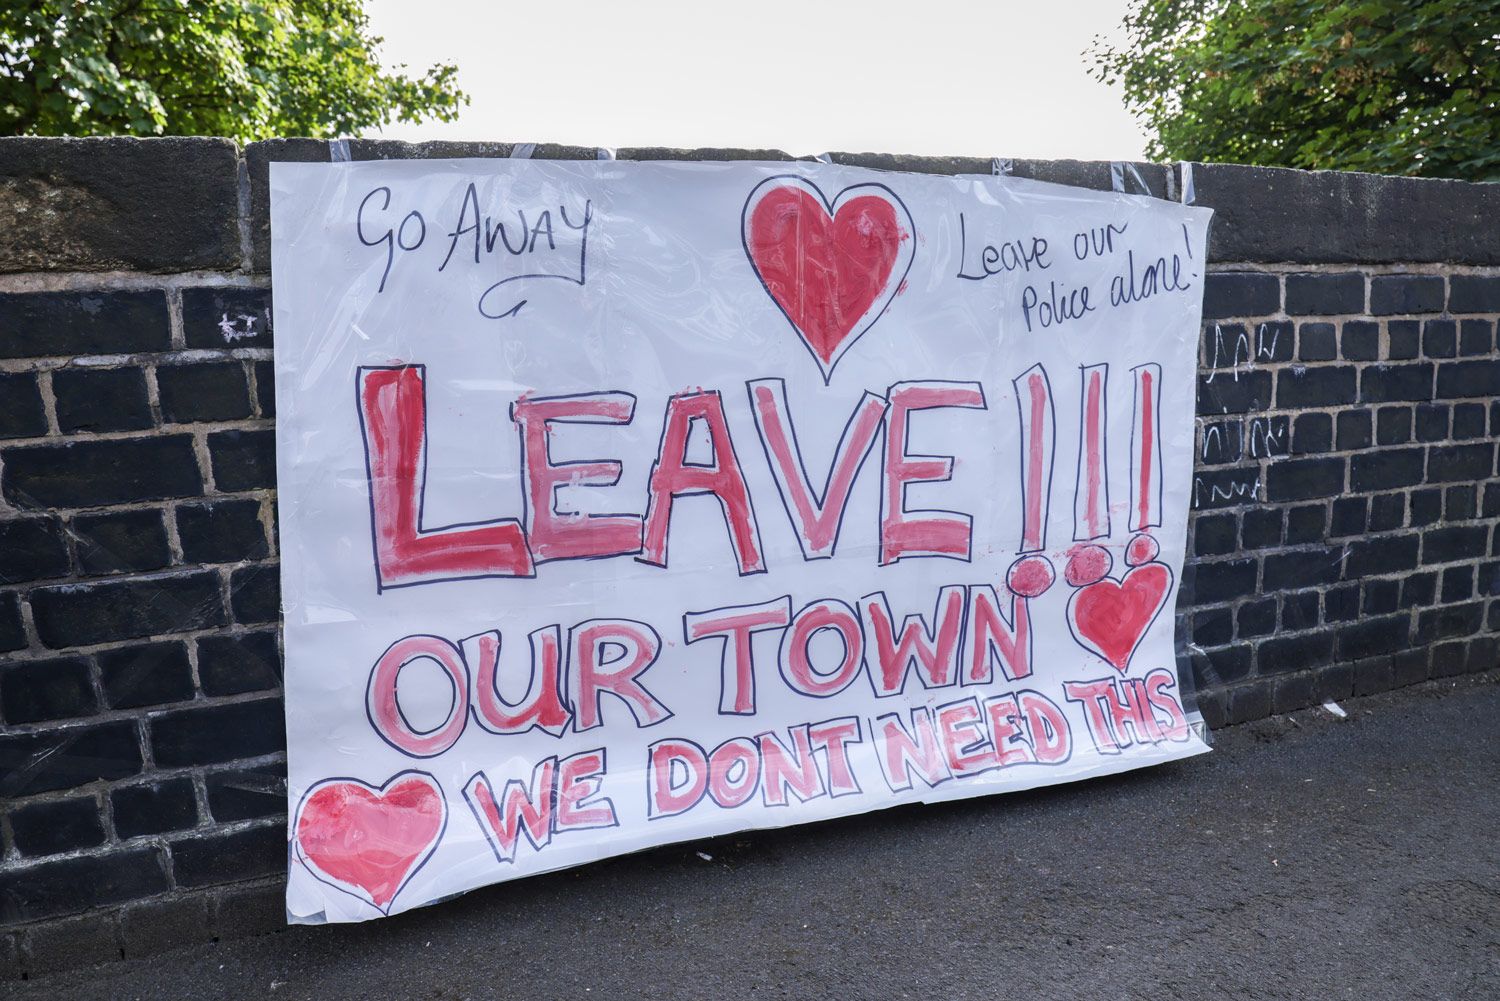 Go Away
Leave our
Police alone!
LEAVE!!!
OUR TOWN
WE DONT NEED THIS